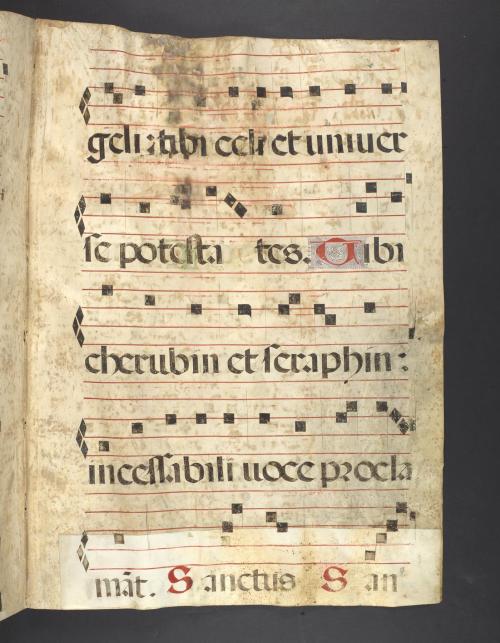 geli : tibi celi et uniuer
se potesta tes. Tibi
cherubin et seraphin :
incessabili uoce procla
mãt. Sanctus San